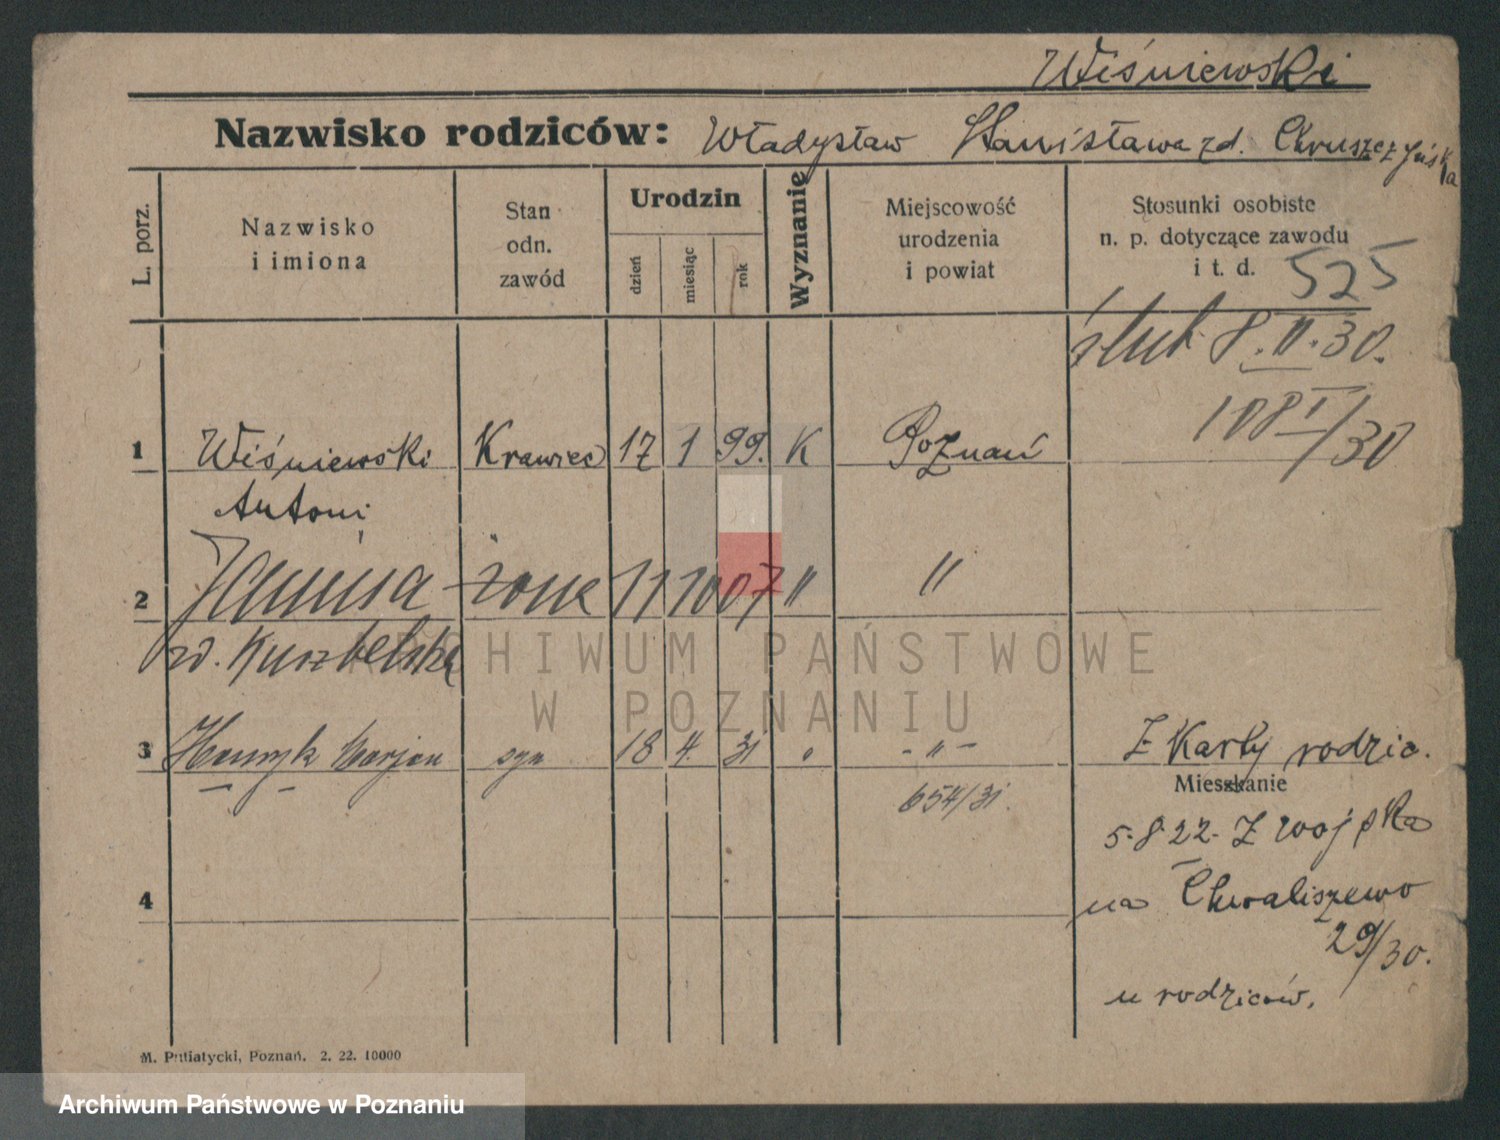 Wiśniewski
Nazwisko rodziców: Władysław Stanisława zd. Chruszczyńska
L. porz.
Nazwisko i imiona
Stan odn. zawód
Urodzin
dzień
miesiąc
rok
Wyznanie
Miejscowość urodzenia i powiat
Stosunki osobiste n. p. dotyczące zawodu i t. d.
525
ślub 8.II.30.
108 I/30
1 Wiśniewski Krawiec 17 1 99. K Poznań
Antoni
2 Janina żona 11 10 07 " "
zd.
3 Henryk Marjan syn 18 4. 31 " - " -
Z Karty rodzic.
654/31.
Mieszkanie
5.8.22. Z wojska
na Chwaliszewo
29/30.
u rodziców.
4
M. Putiatycki, Poznań. 2. 22. 10000
ARCHIWUM PAŃSTWOWE
W POZNANIU
Archiwum Państwowe w Poznaniu